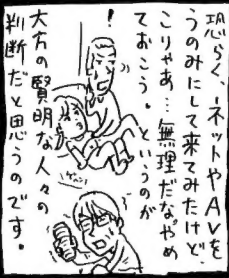 恐らく、ネットやAVを
うのみにして来てみたけど、
こりゃあ…無理だな。やめ
ておこう。というのが
!
大方の賢明な人々の
判断だと思うのです。